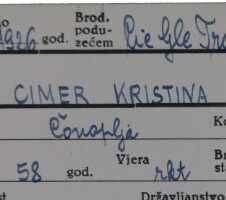 1926 god. Brod. podu- zećem Cie Gle Tra
CIMER KRISTINA
Čonoplja
58 god. Vjera rkt
Državljanstvo